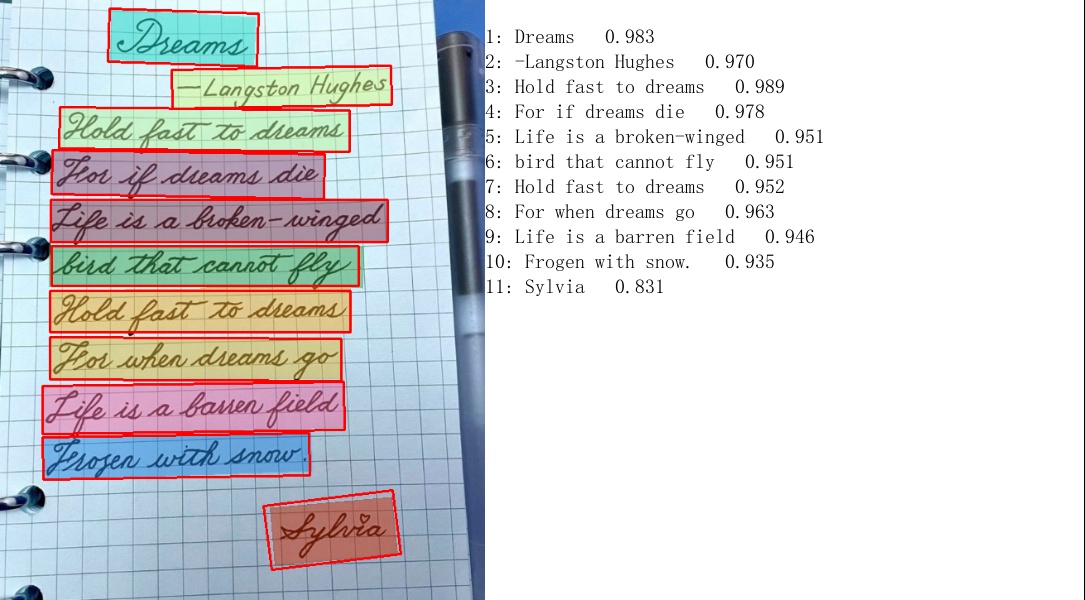 Dreams
—Langston Hughes
Hold fast to dreams
For if dreams die
Life is a broken-winged
bird that cannot fly
Hold fast to dreams
For when dreams go
Life is a barren field
Frozen with snow.
Sylvia
1: Dreams 0.983
2: -Langston Hughes 0.970
3: Hold fast to dreams 0.989
4: For if dreams die 0.978
5: Life is a broken-winged 0.951
6: bird that cannot fly 0.951
7: Hold fast to dreams 0.952
8: For when dreams go 0.963
9: Life is a barren field 0.946
10: Frogen with snow. 0.935
11: Sylvia 0.831